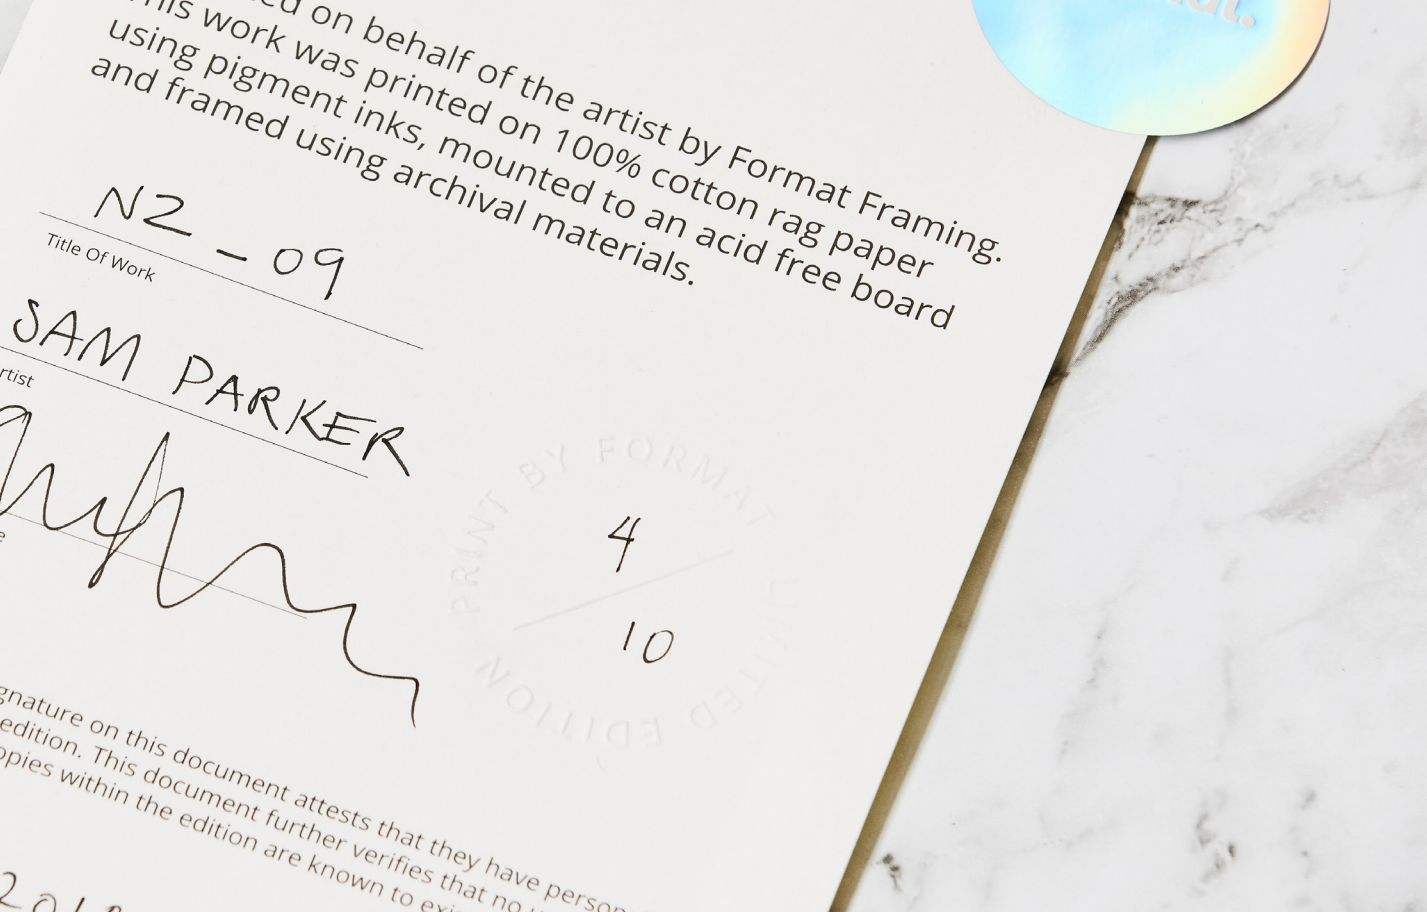 on behalf of the artist by Format Framing.
This work was printed on 100% cotton rag paper
using pigment inks, mounted to an acid free board
and framed using archival materials.
NZ - 09
Title Of Work
SAM PARKER
4
10
PRINT BY FORMAT LIMITED EDITION
on this document attests that they have
edition. This document further verifies that no
within the edition are known to